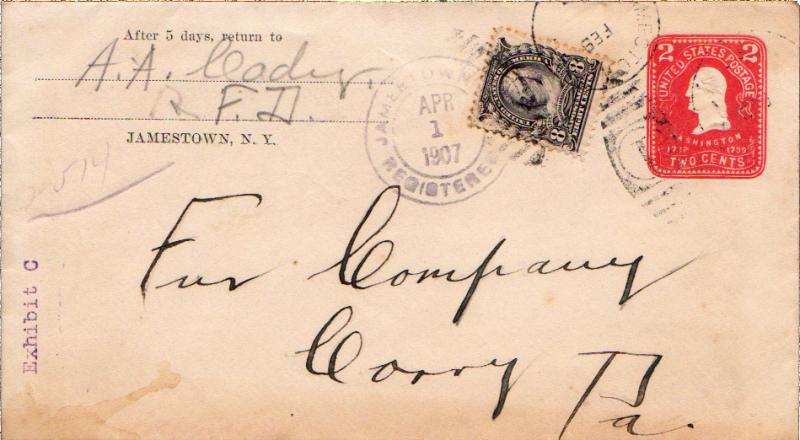 After 5 days, return to
A. A. Cady.
R. F. D.
JAMESTOWN, N. Y.
JAMESTOWN
APR
1
1907
REGISTERED
8 8
FEB
2 2
UNITED STATES POSTAGE
WASHINGTON
1732 1799
TWO CENTS
Fur Company
Corry Pa.
Exhibit C